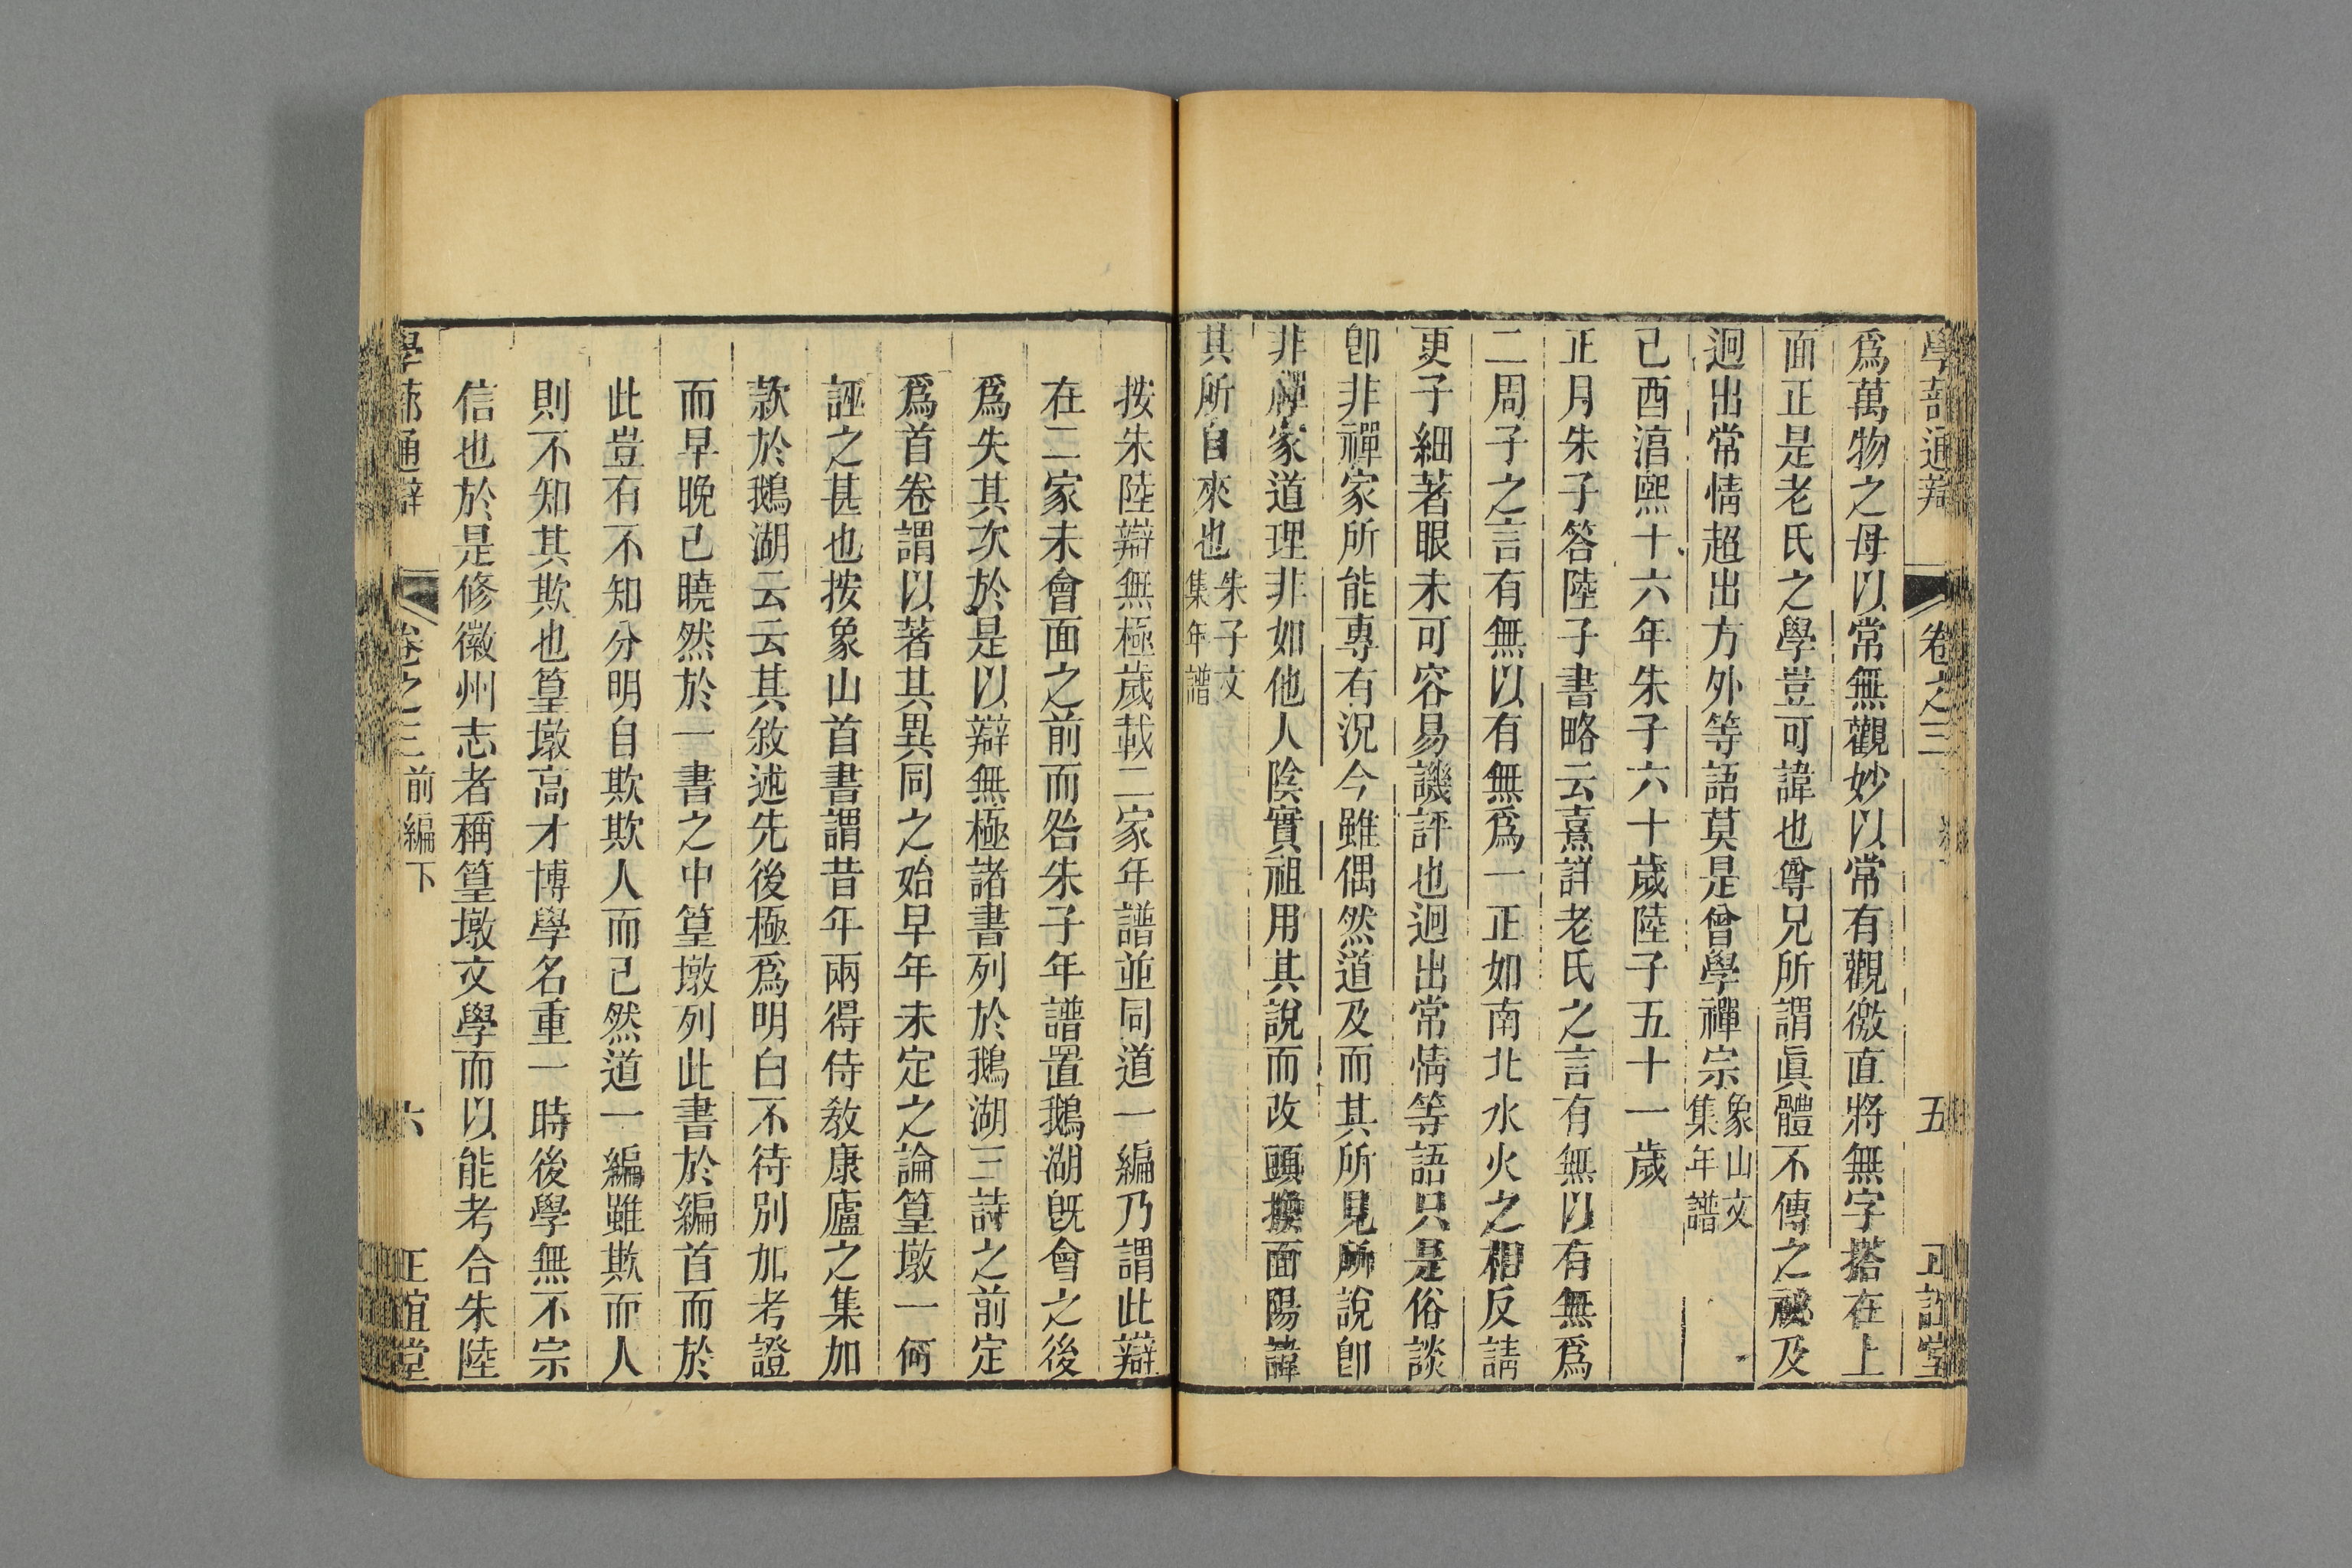 學蔀通辯 卷之三 五 正誼堂
爲萬物之母以常無觀妙以常有觀徼直將無字搭在上
面正是老氏之學豈可諱也尊兄所謂眞體不傳之祕及
迥出常情超出方外等語莫是曾學禪宗象山文集年譜
己酉淳熙十六年朱子六十歲陸子五十一歲
正月朱子答陸子書略云熹詳老氏之言有無以有無爲
二周子之言有無以有無爲一正如南北水火之相反請
更子細著眼未可容易譏評也迥出常情等語只是俗談
卽非禪家所能專有況今雖偶然道及而其所見所說卽
非禪家道理非如他人陰實祖用其說而改頭換面陽諱
其所自來也朱子文集年譜
按朱陸辯無極歲載二家年譜並同道一編乃謂此辯
在二家未會面之前而咎朱子年譜置鵝湖旣會之後
爲失其次於是以辯無極諸書列於鵝湖三詩之前定
爲首卷謂以著其異同之始早年未定之論篁墩一何
誣之甚也按象山首書謂昔年兩得侍敎康廬之集加
款於鵝湖云云其敘述先後極爲明白不待別加考證
而早晚已曉然於一書之中篁墩列此書於編首而於
此豈有不知分明自欺欺人而已然道一編雖欺而人
則不知其欺也篁墩高才博學名重一時後學無不宗
信也於是修徽州志者稱篁墩文學而以能考合朱陸
學蔀通辯 卷之三 前編下 六 正誼堂